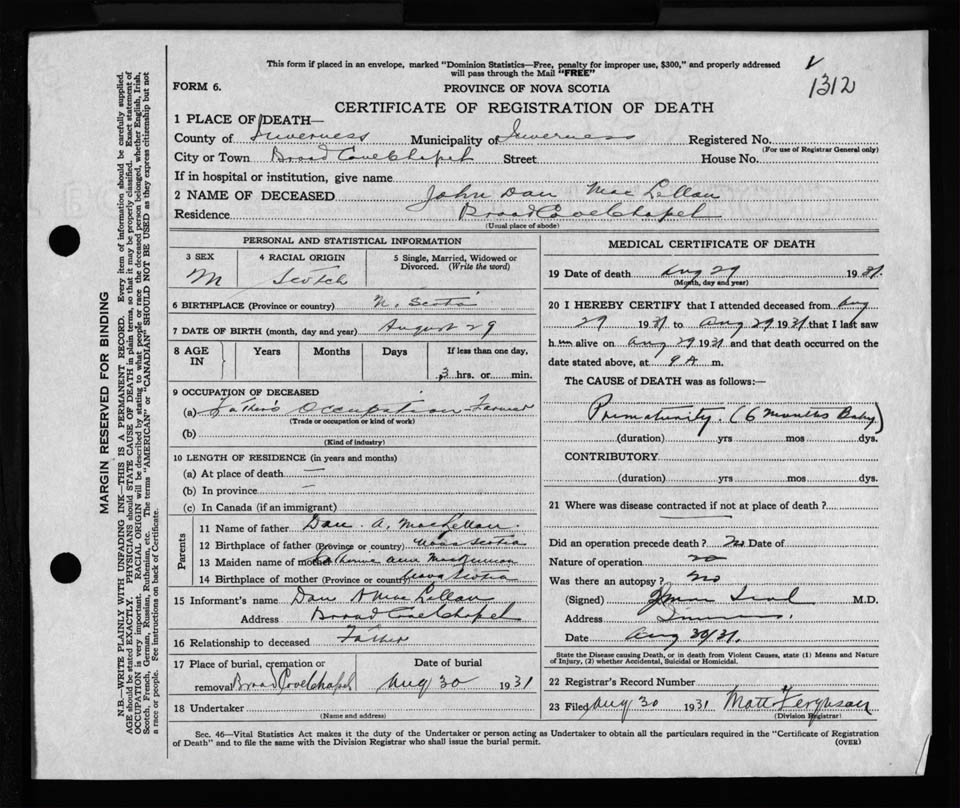 This form if placed in an envelope, marked "Dominion Statistics—Free, penalty for improper use, $300," and properly addressed
will pass through the Mail "FREE"
1312
FORM 6.
PROVINCE OF NOVA SCOTIA
CERTIFICATE OF REGISTRATION OF DEATH
1 PLACE OF DEATH—
County of Inverness Municipality of Inverness Registered No.
(For use of Registrar General only)
City or Town Broad Cove Chapel Street House No.
If in hospital or institution, give name
2 NAME OF DECEASED John Dan MacLellan
Residence Broad Cove Chapel
(Usual place of abode)
PERSONAL AND STATISTICAL INFORMATION
3 SEX 4 RACIAL ORIGIN 5 Single, Married, Widowed or
Divorced. (Write the word)
M Scotch
6 BIRTHPLACE (Province or country) N. Scotia
7 DATE OF BIRTH (month, day and year) August 29
8 AGE IN Years Months Days If less than one day,
3 hrs. or min.
9 OCCUPATION OF DECEASED
(a) Father's Occupation Farmer
(Trade or occupation or kind of work)
(b)
(Kind of industry)
10 LENGTH OF RESIDENCE (in years and months)
(a) At place of death —
(b) In province —
(c) In Canada (if an immigrant)
Parents
11 Name of father Dan. A. MacLellan.
12 Birthplace of father (Province or country) Nova Scotia
13 Maiden name of mother Catherine Ann
14 Birthplace of mother (Province or country) Nova Scotia
15 Informant's name Dan A MacLellan
Address Broad Cove Chapel
16 Relationship to deceased Father
17 Place of burial, cremation or Date of burial
removal Broad Cove Chapel Aug 30 1931
18 Undertaker
(Name and address)
MEDICAL CERTIFICATE OF DEATH
19 Date of death Aug 29 1931.
(Month, day and year)
20 I HEREBY CERTIFY that I attended deceased from Aug
29 1931 to Aug 29 1931 that I last saw
him alive on Aug 29 1931 and that death occurred on the
date stated above, at 9 A m.
The CAUSE of DEATH was as follows:—
Prematurity. (6 months Baby)
(duration) yrs mos dys.
CONTRIBUTORY
(duration) yrs mos dys.
21 Where was disease contracted if not at place of death?
Did an operation precede death? No Date of
Nature of operation no
Was there an autopsy? no
(Signed) M.D.
Address
Date Aug 30/31.
State the Disease causing Death, or in death from Violent Causes, state (1) Means and Nature
of Injury, (2) whether Accidental, Suicidal or Homicidal.
22 Registrar's Record Number
23 Filed Aug 30 1931 Matt Ferguson
(Division Registrar)
Sec. 46—Vital Statistics Act makes it the duty of the Undertaker or person acting as Undertaker to obtain all the particulars required in the "Certificate of Registration
of Death" and to file the same with the Division Registrar who shall issue the burial permit. (OVER)
MARGIN RESERVED FOR BINDING
N.B.—WRITE PLAINLY WITH UNFADING INK—THIS IS A PERMANENT RECORD. Every item of information should be carefully supplied.
AGE should be stated EXACTLY. PHYSICIANS should STATE CAUSE OF DEATH in plain terms, so that it may be properly classified. Exact statement of
OCCUPATION is very important. RACIAL ORIGIN will be described by stating to what people or race the deceased person belonged, whether English, Irish,
Scotch, French, German, Russian, Ruthenian, etc. The terms "AMERICAN" or "CANADIAN" SHOULD NOT BE USED as they express citizenship but not
a race or people. See instructions on back of Certificate.